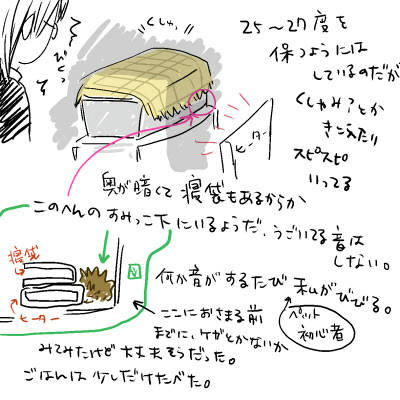 くしゅっ
びくっ
25～27度を
保つようには
しているのだが
くしゃみ?とか
きこえたり
スピスピ
いってる
ヒーター
奥が暗くて寝袋もあるからか
このへんのすみっこ下にいるようだ、うごいてる音は
しない。
寝袋
ヒーター
何か音がするたび私がびびる。
ペット
初心者
ここにおさまる前
までに、ケガとかないか
みてみたけど大丈夫そうだった。
ごはんは少しだけたべた。